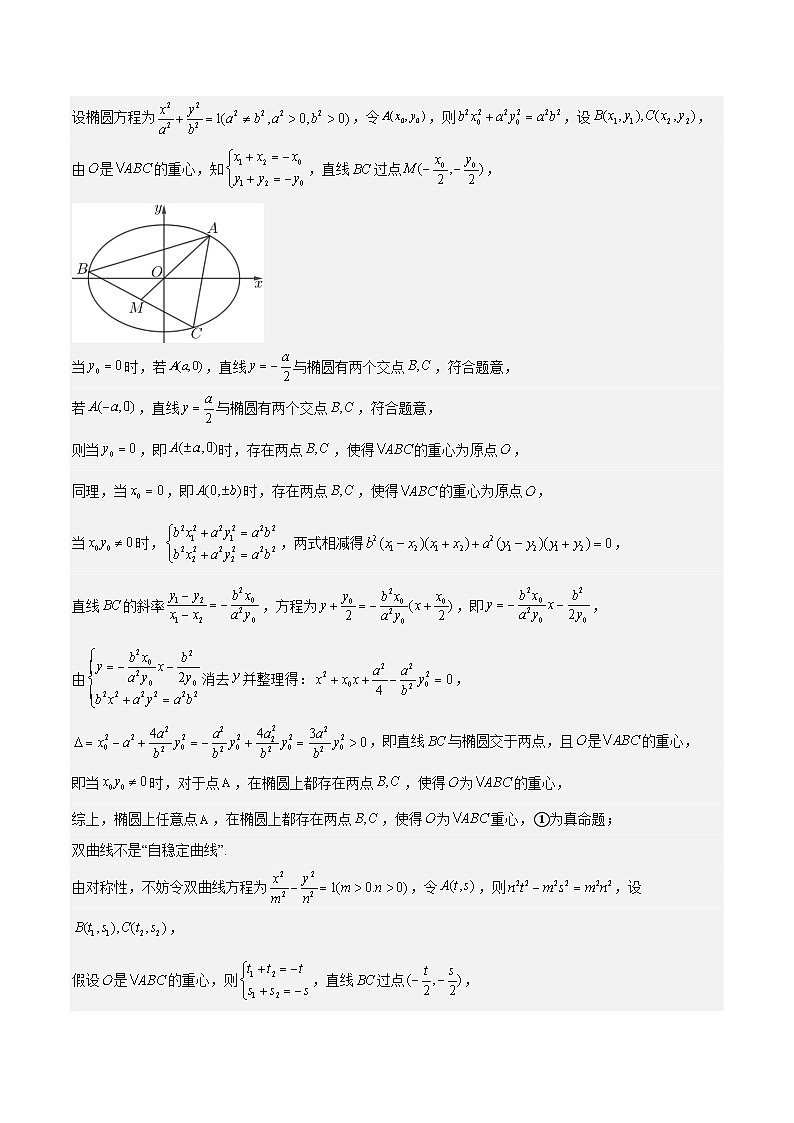 设椭圆方程为 $\frac{x^2}{a^2}+\frac{y^2}{b^2}=1(a^2\neq b^2,a^2>0,b^2>0)$,令 $A(x_0,y_0)$,则 $b^2x_0^2+a^2y_0^2=a^2b^2$,设 $B(x_1,y_1),C(x_2,y_2)$,
由 O 是 VABC 的重心,知 $\begin{cases}x_1+x_2=-x_0\\y_1+y_2=-y_0\end{cases}$,直线 BC 过点 $M(-\frac{x_0}{2},-\frac{y_0}{2})$,
y
A
B
O
x
M
C
当 $y_0=0$ 时,若 $A(a,0)$,直线 $y=-\frac{a}{2}$ 与椭圆有两个交点 B,C,符合题意,
若 $A(-a,0)$,直线 $y=\frac{a}{2}$ 与椭圆有两个交点 B,C,符合题意,
则当 $y_0=0$,即 $A(\pm a,0)$ 时,存在两点 B,C,使得 VABC 的重心为原点 O,
同理,当 $x_0=0$,即 $A(0,\pm b)$ 时,存在两点 B,C,使得 VABC 的重心为原点 O,
当 $x_0y_0\neq 0$ 时,$\begin{cases}b^2x_1^2+a^2y_1^2=a^2b^2\\b^2x_2^2+a^2y_2^2=a^2b^2\end{cases}$,两式相减得 $b^2(x_1-x_2)(x_1+x_2)+a^2(y_1-y_2)(y_1+y_2)=0$,
直线 BC 的斜率 $\frac{y_1-y_2}{x_1-x_2}=-\frac{b^2x_0}{a^2y_0}$,方程为 $y+\frac{y_0}{2}=-\frac{b^2x_0}{a^2y_0}(x+\frac{x_0}{2})$,即 $y=-\frac{b^2x_0}{a^2y_0}x-\frac{b^2}{2y_0}$,
由 $\begin{cases}y=-\frac{b^2x_0}{a^2y_0}x-\frac{b^2}{2y_0}\\b^2x^2+a^2y^2=a^2b^2\end{cases}$ 消去 y 并整理得:$x^2+x_0x+\frac{a^2}{4}-\frac{a^2}{b^2}y_0^2=0$,
$\Delta=x_0^2-a^2+\frac{4a^2}{b^2}y_0^2=-\frac{a^2}{b^2}y_0^2+\frac{4a^2}{b^2}y_0^2=\frac{3a^2}{b^2}y_0^2>0$,即直线 BC 与椭圆交于两点,且 O 是 VABC 的重心,
即当 $x_0y_0\neq 0$ 时,对于点 A,在椭圆上都存在两点 B,C,使得 O 为 VABC 的重心,
综上,椭圆上任意点 A,在椭圆上都存在两点 B,C,使得 O 为 VABC 重心,①为真命题;
双曲线不是“自稳定曲线”.
由对称性,不妨令双曲线方程为 $\frac{x^2}{m^2}-\frac{y^2}{n^2}=1(m>0.n>0)$,令 $A(t,s)$,则 $n^2t^2-m^2s^2=m^2n^2$,设
$B(t_1,s_1),C(t_2,s_2)$,
假设 O 是 VABC 的重心,则 $\begin{cases}t_1+t_2=-t\\s_1+s_2=-s\end{cases}$,直线 BC 过点 $(-\frac{t}{2},-\frac{s}{2})$,